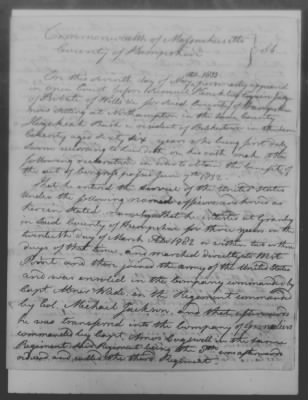 Commonwealth of Massachusetts
County of Hampshire Ss.
On this seventh day of May 1833, personally appeared
in open Court before Samuel Hinckley Esq Judge
of Probate of Wills &c for said County of Hampshire
now sitting at Northampton in the same County
a resident of Belchertown in the same
County aged sixty six years who being first duly
sworn according to law, doth on his oath make the
following declaration in order to obtain the benefit of
the act of Congress passed June 7th 1832.
That he entered the service of the United States
under the following named officers and served as
herein stated namely that he enlisted at Granby
in said County of Hampshire for three years on the
twentieth day of March AD 1782 or within two or three
days of that time, and marched directly to West
Point and there joined the army of the United States
and was enrolled in the Company commanded by
Capt Abner in the Regiment commanded
by Col Michael Jackson, and that afterwards
he was transferred into the Company of Grenadiers
commanded by Capt in the same
Regiment said Regiment being the 8th was afterwards
and called the third Regiment